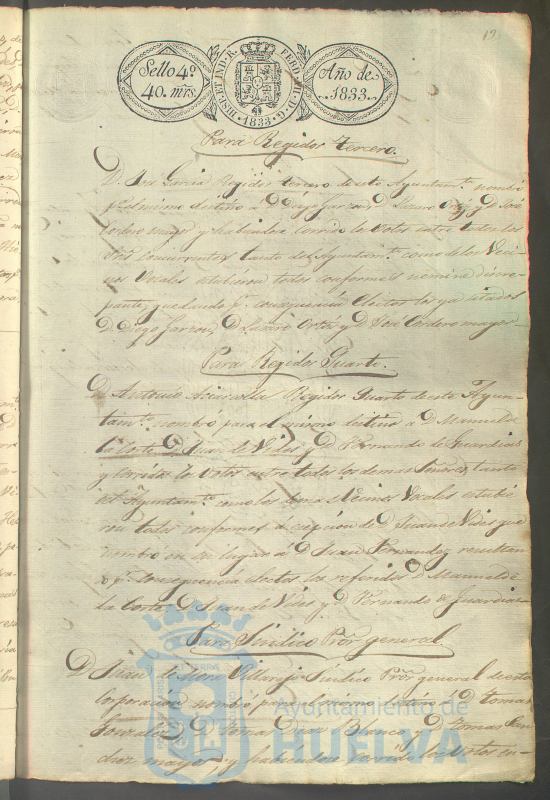 19
Sello 4º
40. mrs.
HISP. ET IND. R. FERD. VII. D. G.
1833
Año de
1833.
Para Regidor tercero.
D. José Garcia Regidor tercero de este Ayuntamto. nombró
para el mismo destino á D. Diego Garzon, D. Lazaro Ortiz y D. José
Cordero mayor y habiendo corrido los Votos entre todos los
Sres. concurrentes tanto del Ayuntamto. como de los Veci-
nos Vocales estubieron todos conformes nemine discre-
pante, quedando pr. consequencia electos los ya citados
D. Diego Garzon, D. Lazaro Ortiz y D. José Cordero mayor
Para Regidor Quarto.
D. Antonio Regidor Quarto de este Ayun-
tamto. nombró para el mismo destino á D. Manuel de
la Corte, D. Juan de Vides y D. Fernando de Guardias
y corridos los Votos entre todos los demas Señores tanto
del Ayuntamto. como los Vecinos Vocales estubie-
ron todos conformes á escepcion de D. Juan de Vides que
nombró en su lugar á D. Juan Fernandez, resultan-
do pr. consequencia electos los referidos D. Manuel de
la Corte, D. Juan de Vides y D. Fernando de Guardias
Para Sindico Pror. general
D. Juan de Mora Villarejo Sindico Pror. general de esta
corporacion nombró para á D. Tomas
Gonzalez, D. Tomas Diaz Blanco y D. Tomas San-
chez mayor, y habiendo corrido los Votos en-
Ayuntamiento de
HUELVA